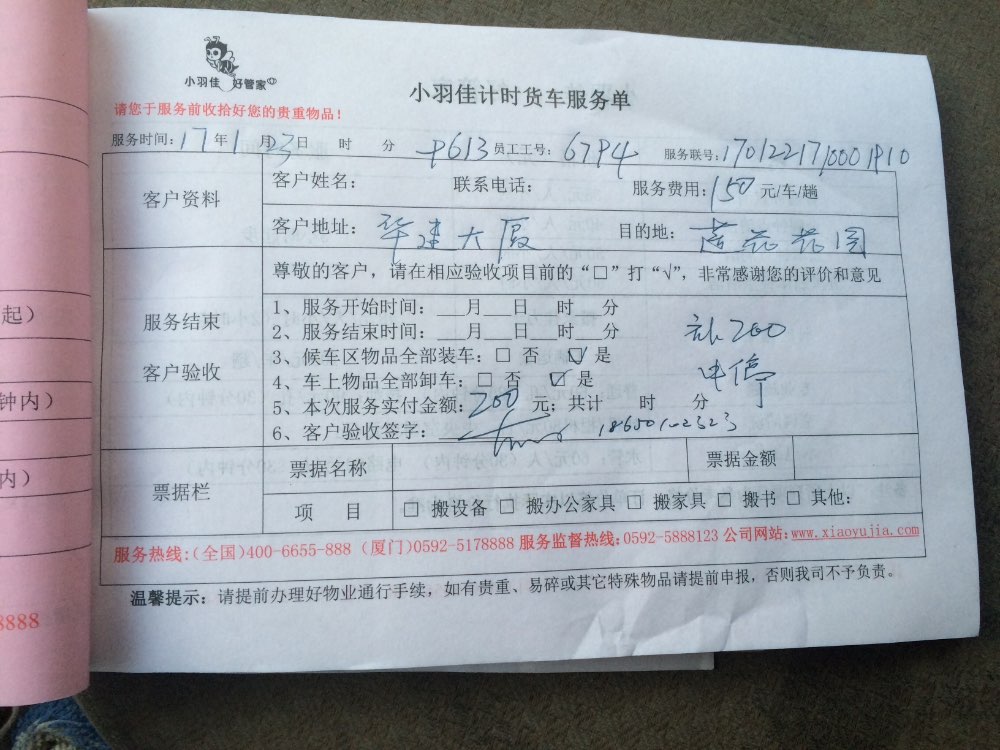 小羽佳 好管家
小羽佳计时货车服务单
请您于服务前收拾好您的贵重物品！
服务时间：17年1月23日 时 分 P613 员工工号：6794 服务联号：1701221710001910
客户资料
客户姓名： 联系电话： 服务费用：150元/车/趟
客户地址：华建大厦 目的地：莲花花园
尊敬的客户，请在相应验收项目前的“□”打“√”，非常感谢您的评价和意见
服务结束
客户验收
1、服务开始时间：___月___日___时___分
2、服务结束时间：___月___日___时___分
3、候车区物品全部装车：□ 否 ☑ 是
4、车上物品全部卸车：□ 否 ☑ 是
5、本次服务实付金额：200元；共计 时 分
6、客户验收签字： 18650102323
补200
中停
票据栏
票据名称 票据金额
项 目 □ 搬设备 □ 搬办公家具 □ 搬家具 □ 搬书 □ 其他：
服务热线：（全国）400-6655-888（厦门）0592-5178888 服务监督热线：0592-5888123 公司网站：www.xiaoyujia.com
温馨提示：请提前办理好物业通行手续，如有贵重、易碎或其它特殊物品请提前申报，否则我司不予负责。
起）
钟内）
内）
8888